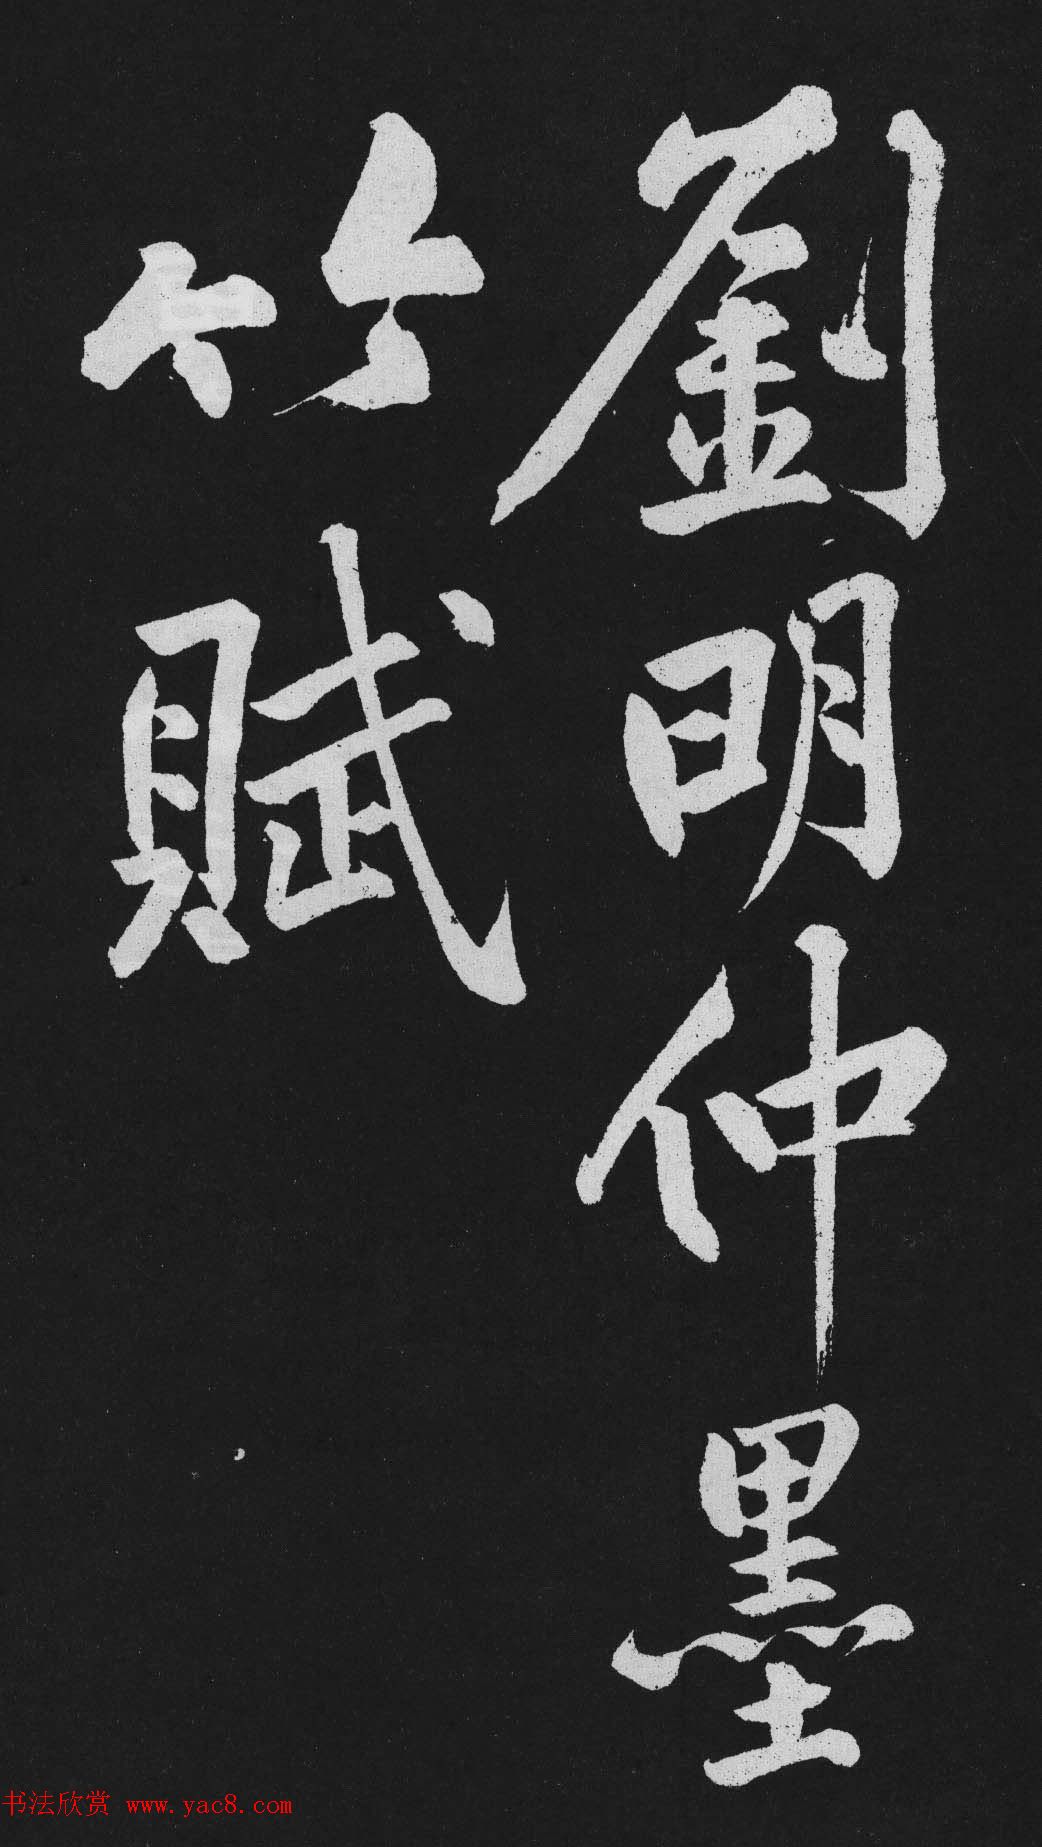 劉明仲墨
竹賦
书法欣赏 www.yac8.com